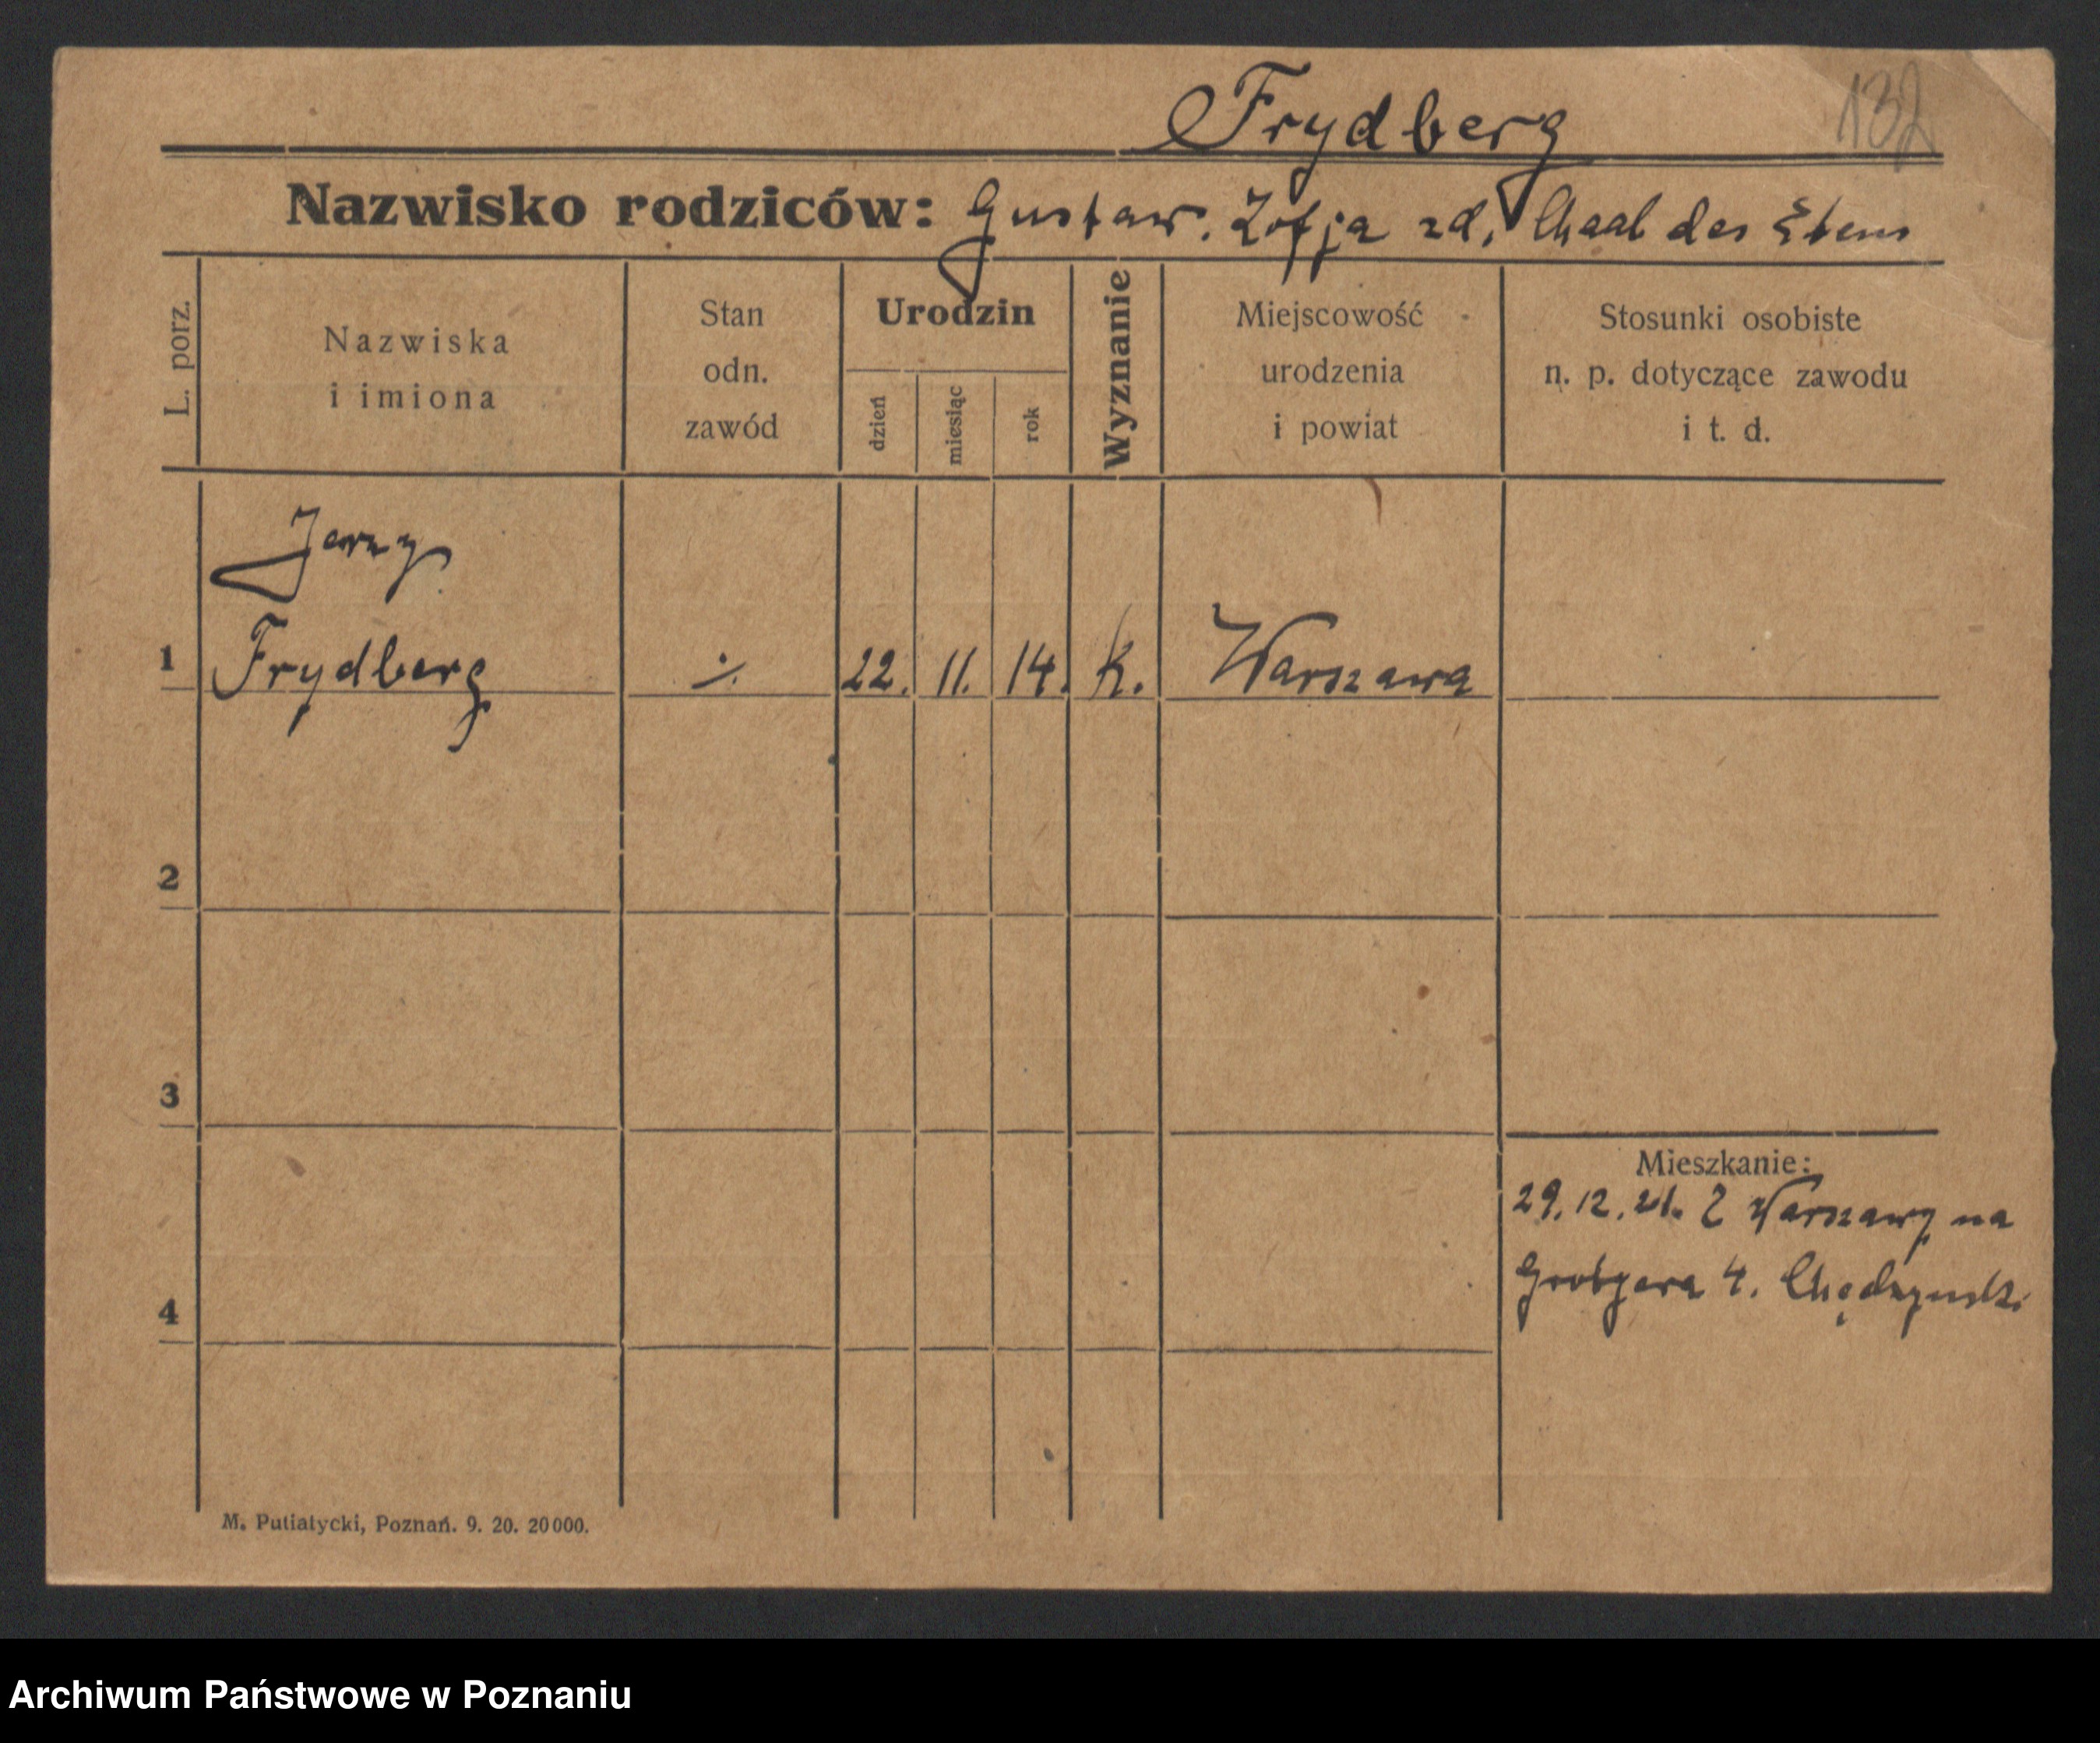 Frydberg
132
Nazwisko rodziców: Gustaw. Zofja zd.
L. porz.
Nazwiska i imiona
Stan odn. zawód
Urodzin
dzień
miesiąc
rok
Wyznanie
Miejscowość urodzenia i powiat
Stosunki osobiste n. p. dotyczące zawodu i t. d.
Jerzy
1 Frydberg ·/. 22. 11. 14. K. Warszawa
2
3
Mieszkanie:
29. 12. 21. Z Warszawy na
4. Chędzynski
4
M. Putiatycki, Poznań. 9. 20. 20000.
Archiwum Państwowe w Poznaniu